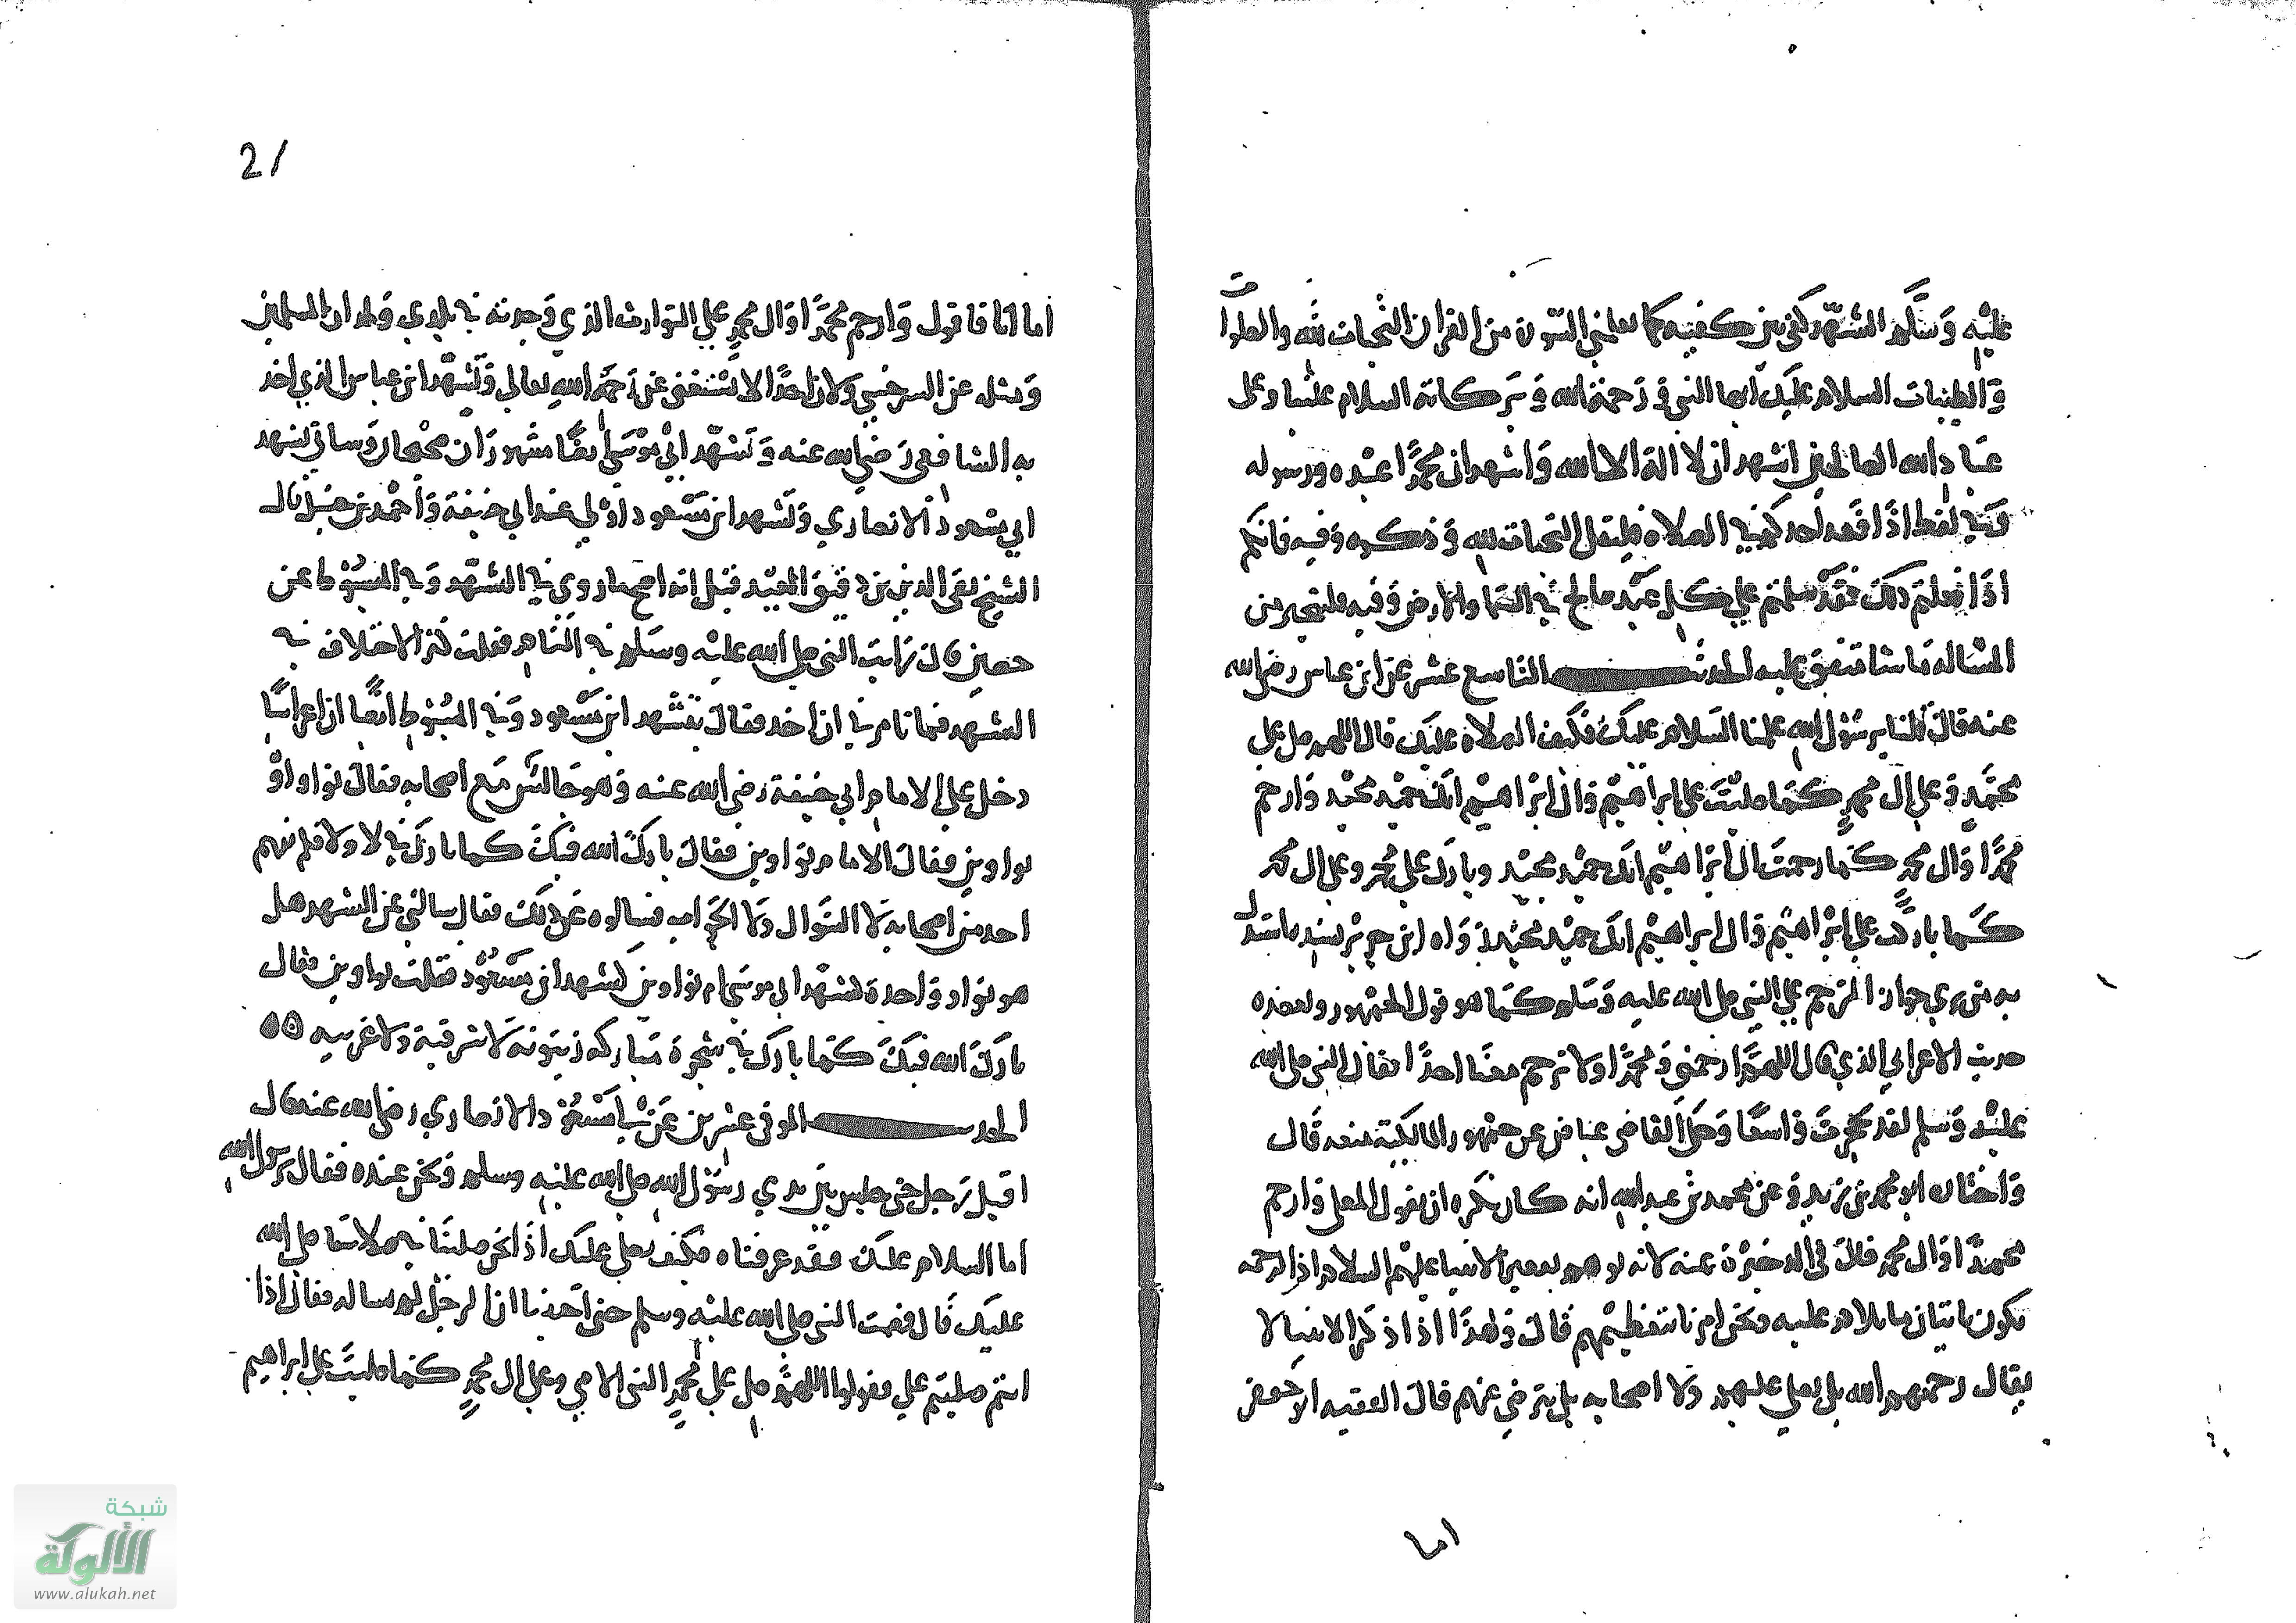 عليه وسلم التشهد كفي بين كفيه كما يعلمني السورة من القران التحيات لله والصلوات
والطيبات السلام عليك أيها النبي ورحمة الله وبركاته السلام علينا وعلى
عباد الله الصالحين اشهد ان لا اله الا الله واشهد ان محمدا عبده ورسوله
وفي لفظ اذا قعد احدكم في الصلاة فليقل التحيات لله وذكره وفيه فانكم
اذا فعلتم ذلك فقد سلمتم على كل عبد صالح في السما والارض وفيه فليتخير من
المسالة ما شا متفق عليه الحديث التاسع عشر عن ابن عباس رضي الله
عنه قال قلنا يرسول الله علمنا السلام عليك فكيف الصلاة عليك قال اللهم صل على
محمد وعلى ال محمد كما صليت على ابراهيم وال ابراهيم انك حميد مجيد وارحم
محمدا وال محمد كما رحمت ال ابراهيم انك حميد مجيد وبارك على محمد وعلى ال محمد
كما باركت على ابراهيم وال ابراهيم انك حميد مجيد رواه ابن جرير بسنده استدل
به من يرى جواز الترحم على النبي صلى الله عليه وسلم كما هو قول الجمهور ويعضده
حديث الاعرابي الذي قال اللهم ارحمني ومحمدا ولا ترحم معنا احدا فقال النبي صلى الله
عليه وسلم لقد تحجرت واسعا وحكى القاضي عياض عن جمهور المالكية منعه قال
واختاره ابو محمد بن زيد وعن محمد بن عبد الله انه كان يكره ان يقول المصلي وارحم
محمدا وال محمد قال في الذخيرة عنه لانه يوهم تقصير الانبيا عليهم السلام اذ الرحمة
تكون باتيان ما يلام عليه ونحن امرنا بتعظيمهم قال ولهذا اذا ذكر الانبيا لا
يقال رحمهم الله بل يصلي عليهم ولا اصحابه بل يترضى عنهم قال الفقيه ابو جعفر
اما
21
اما انا فاقول وارحم محمدا وال محمد على التوارث الذي وجدته في بلدي وبلدان المسلمين
ومثله عن السرخسي ولان احدا لا يستغني عن رحمة الله تعالى وتشهد ابن عباس الذي اخذ
به الشافعي رضي الله عنه وتشهد ابي موسى ايضا مشهوران صحيحان وساتي تشهد
ابي مسعود الانصاري وتشهد ابن مسعود اولى عند ابي حنيفة واحمد بن حنبل قال
الشيخ تقي الدين بن دقيق العيد قيل انه اصح ما روي في التشهد وفي المبسوط عن
حصين قال رايت النبي صلى الله عليه وسلم في المنام فقلت كثر الاختلاف في
التشهد فما تامرني ان اخذ فقال بتشهد ابن مسعود وفي المبسوط ايضا ان اعرابيا
دخل على الامام ابي حنيفة رضي الله عنه وهو جالس مع اصحابه فقال بواو او
بواوين فقال الامام بواوين فقال بارك الله فيك كما بارك في لا ولا فلم يفهم
احد من اصحابه لا السوال ولا الجواب فسالوه عن ذلك فقال سالني عن التشهد هل
هو بواو واحدة كتشهد ابي موسى ام بواوين كتشهد ابن مسعود فقلت بواوين فقال
بارك الله فيك كما بارك في شجرة مباركة زيتونة لا شرقية ولا غربيه
الحديث الموفي عشرين عن ابي مسعود الانصاري رضي الله عنه قال
اقبل رجل حتى جلس بين يدي رسول الله صلى الله عليه وسلم ونحن عنده فقال يرسول الله
اما السلام عليك فقد عرفناه فكيف نصلي عليك اذا نحن صلينا في صلاتنا صلى الله
عليك قال فصمت النبي صلى الله عليه وسلم حتى احببنا ان الرجل لم يساله فقال اذا
انتم صليتم علي فقولوا اللهم صل على محمد النبي الامي وعلى ال محمد كما صليت على ابراهيم
شبكة
الألوكة
www.alukah.net